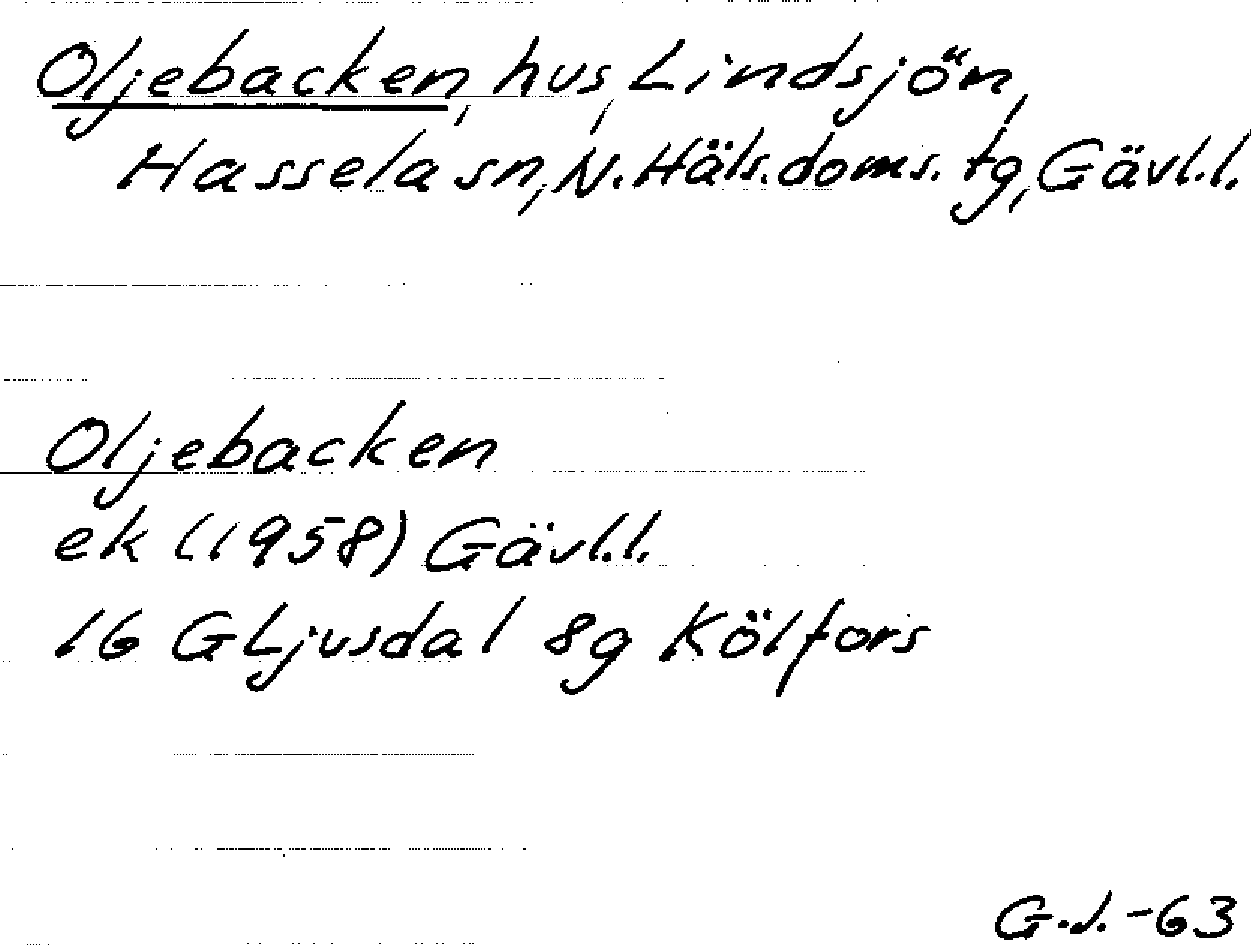 Oljebacken, hus, Lindsjön,
Hassela sn, N. Häls. doms. tg, Gävl.l.
Oljebacken
ek (1958) Gävl.l.
16 G Ljusdal 8g Kölfors
G.J. -63